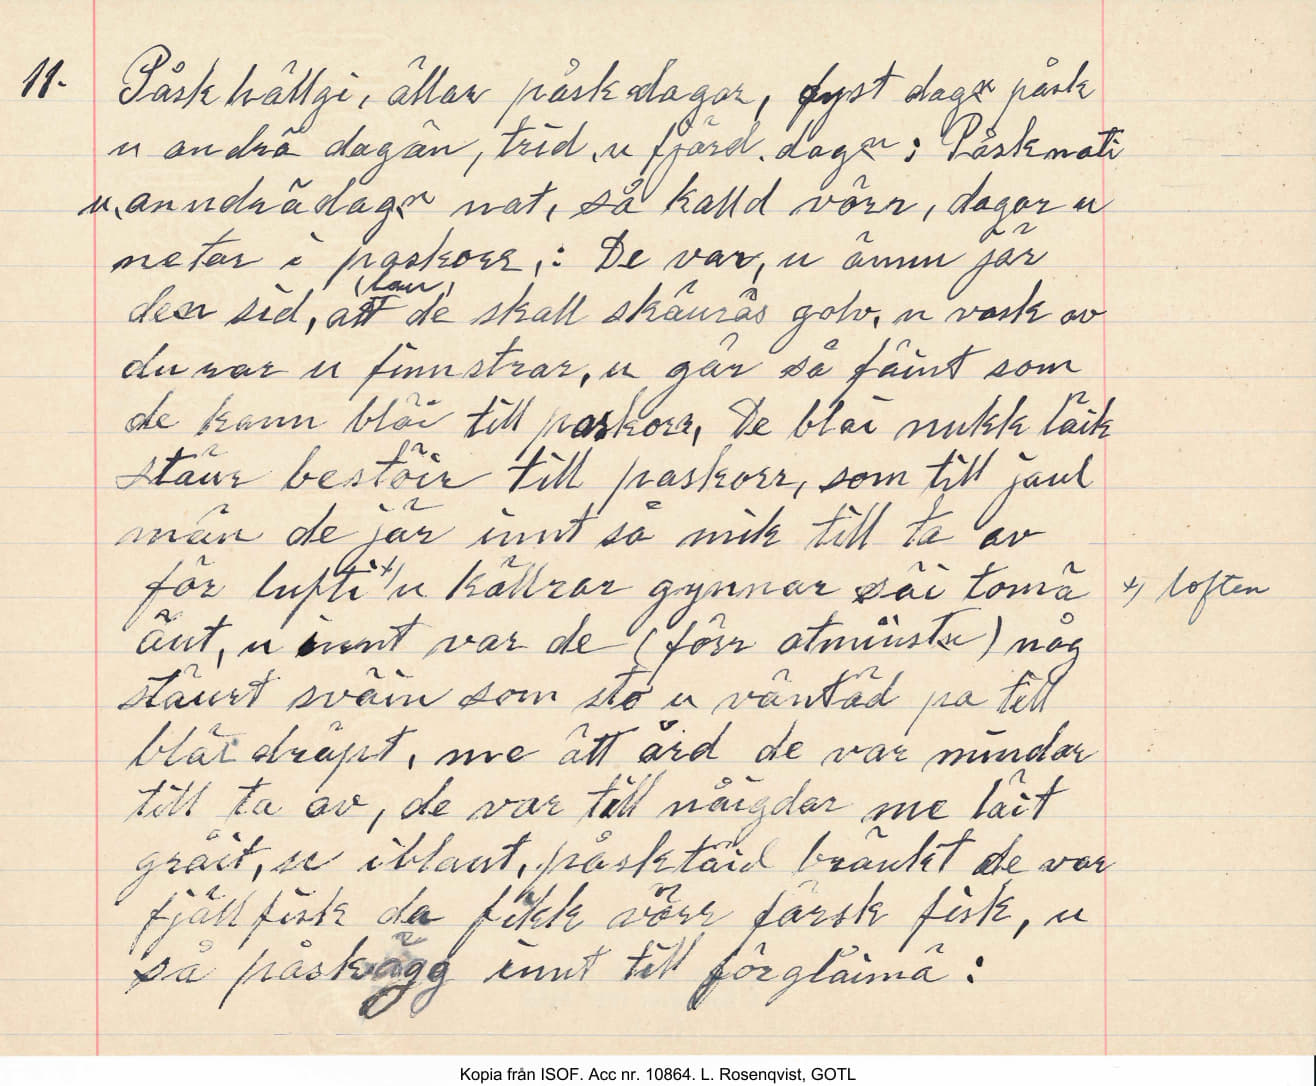 11. Påsk hällgi, ällar påsk dagar, fyst dagn påsk
u andrä dagän, trid u fjärd dagn; Påsk nati
u anndrädagn nat, så kalld vörr, dagar u
netar i paskorr,: De var, u ännu jär
den sid, att (lau) de skall skäuräs golv, u vask av
durar u finnstrar, u gär så fäint som
de kann bläi till paskorr, De bläi nukk läik
stäur bestöir till paskorr, som till jaul
män de jär innt så mik till ta av
för lufti x) u källrar gynnar säi tomä x) loften
äut, u innt var de (förr atminstn) någ
stäurt sväin som sto u väntäd pa till
bläi dräpt, me ätt ård de var mindar
till ta av, de var till nåigdar me läit
gräit, u iblant, påsktäid bräukt de var
fjällfisk da fikk vörr färsk fisk, u
så påskägg innt till förgläimä:
Kopia från ISOF. Acc nr. 10864. L. Rosenqvist, GOTL